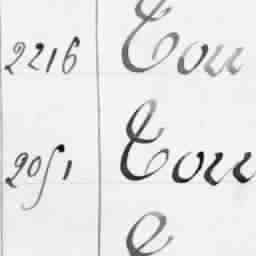 2216 Tou
2051 Tou